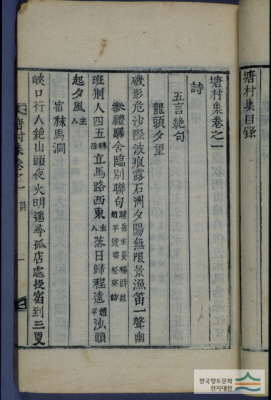 塘村集目錄
塘村集卷之一
詩
五言絶句
龍頭夕望
礒影危沙際波痕露石洲夕陽無限景漁笛一聲幽
參禮驛舍臨別聯句
班荆人四五立馬路西東主人落日歸程遠趙泓頭
起夕風主人
宿秣馬洞
峽口行人絶山頭夜火明遙尋孤店處投宿到三更
塘村集卷之一 詩 一
한국향토문화
전자대전